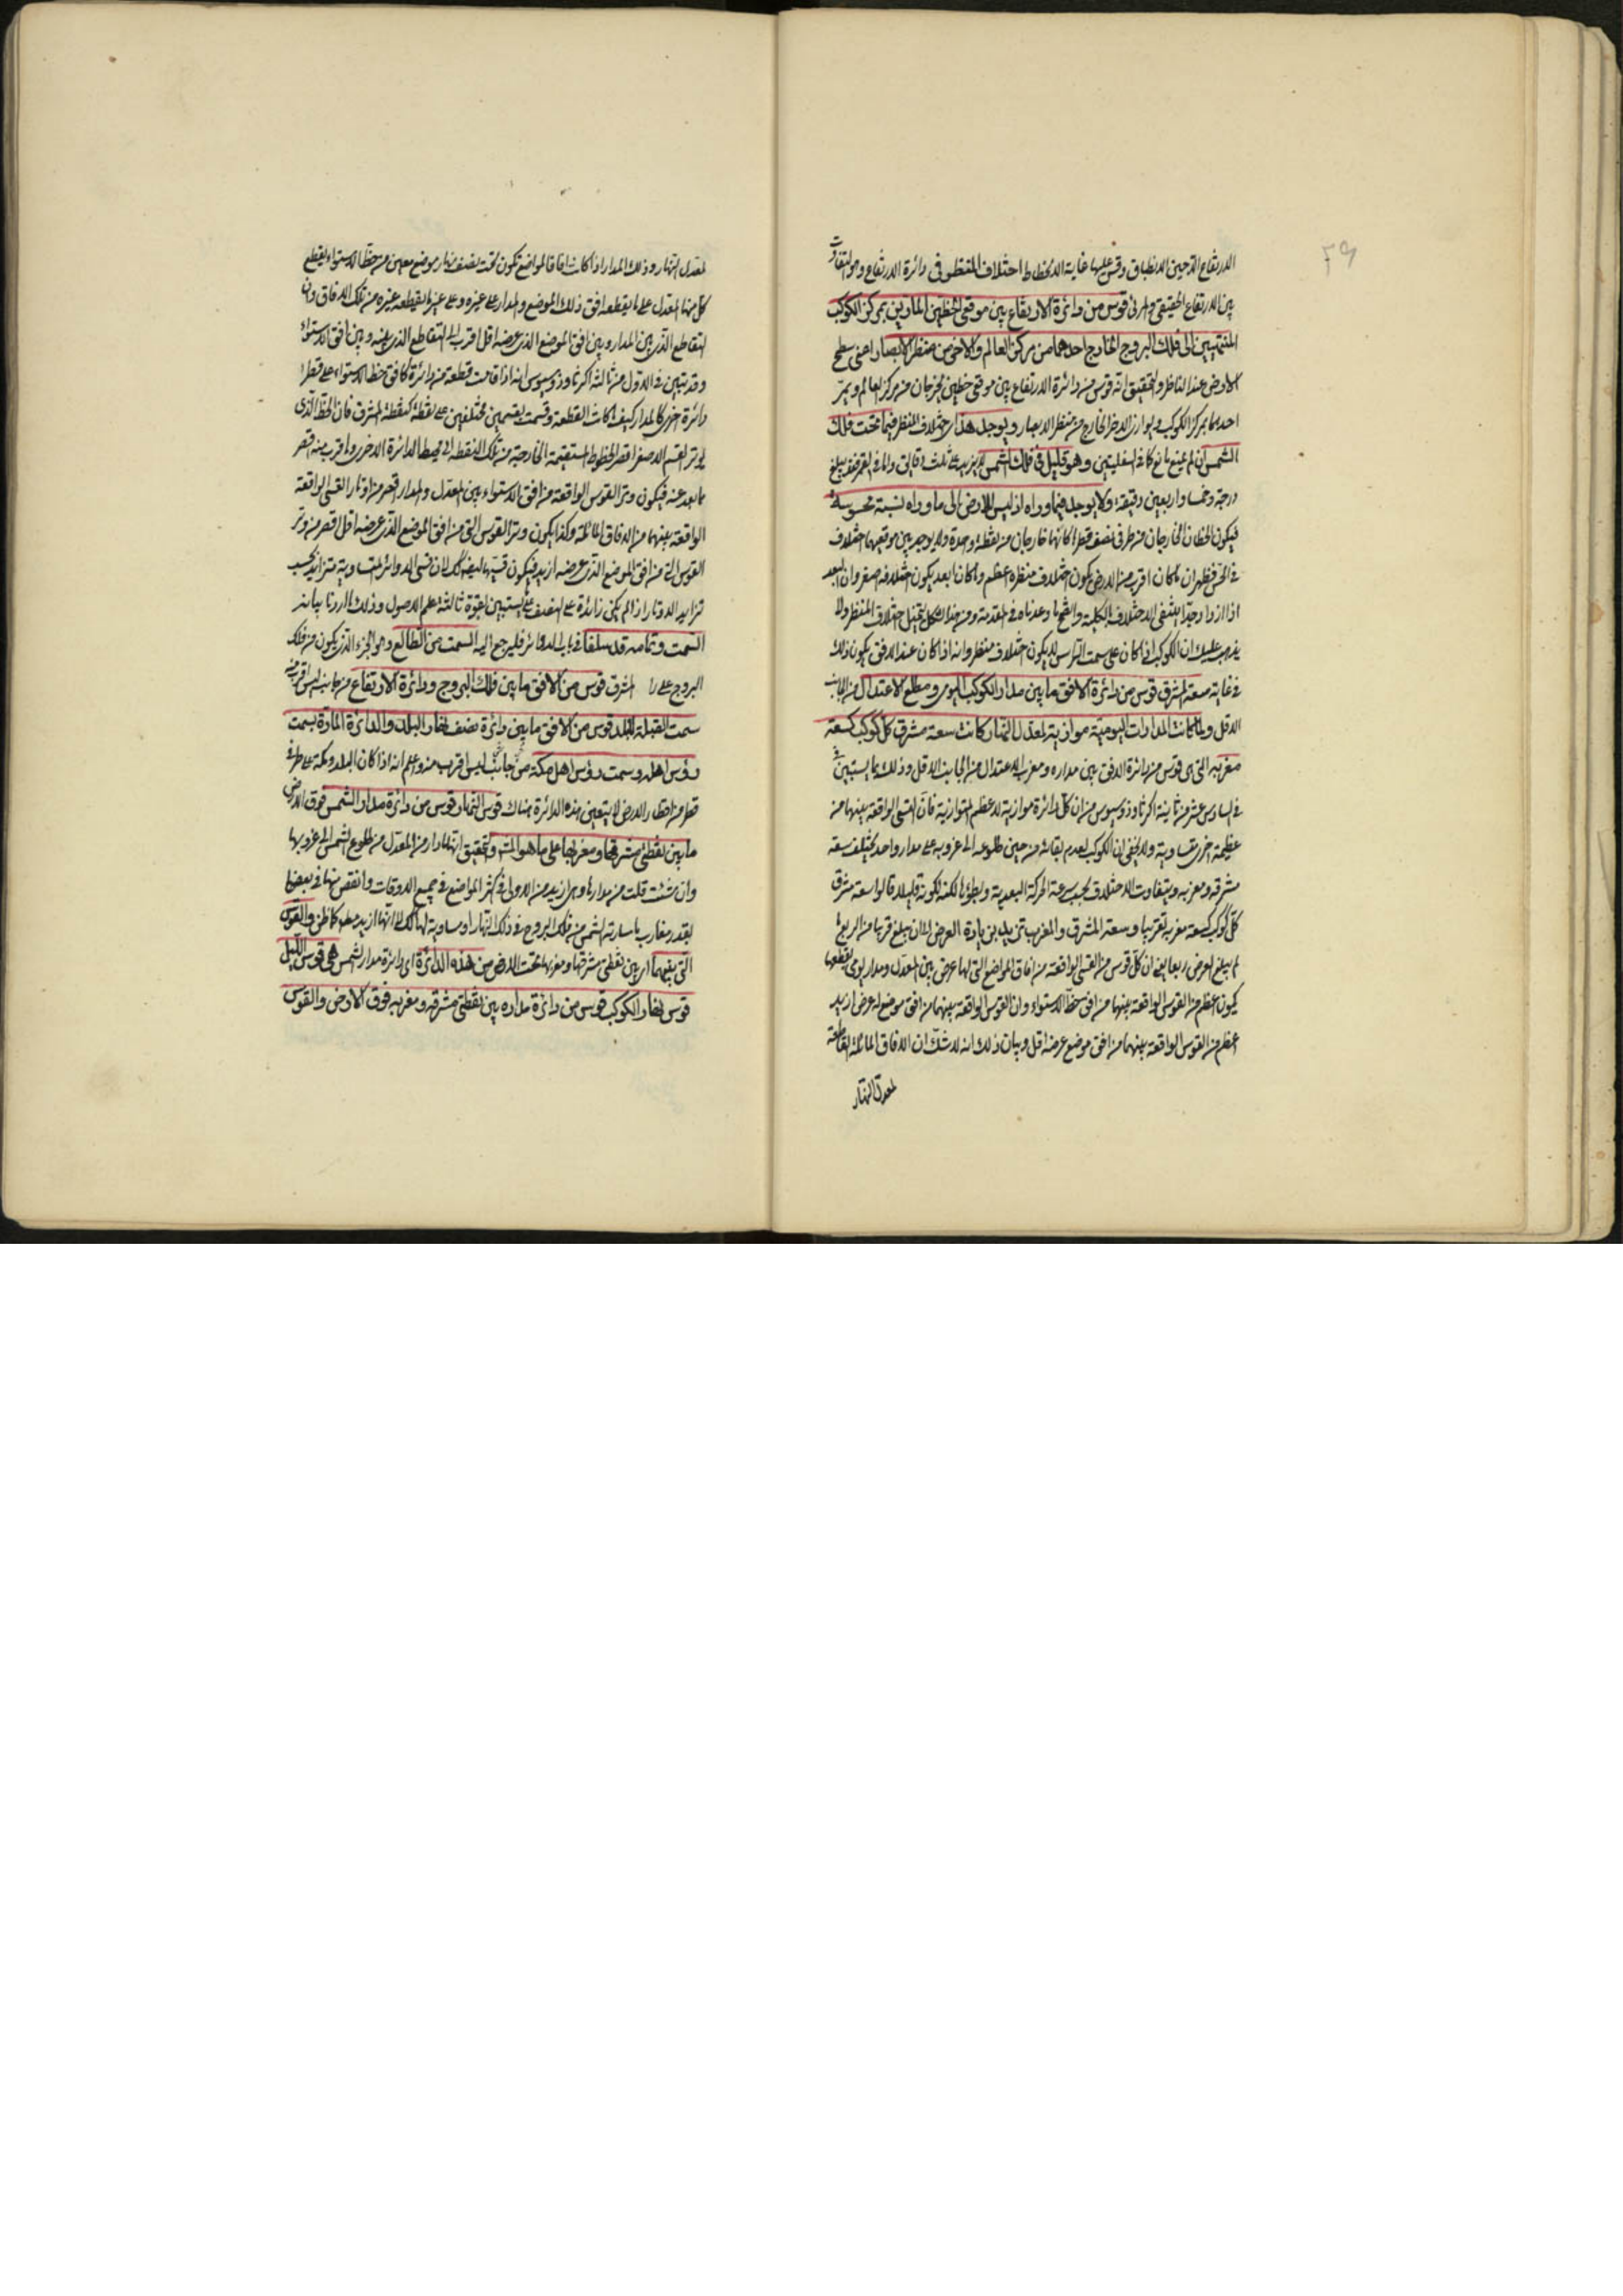 ٣٩
الارتفاع الذى حين الانطباق وقس عليها غاية الانحطاط اختلاف المنظر فى دائرة الارتفاع وهو التفاوت
بين الارتفاع الحقيقى والمرئى قوس من دائرة الارتفاع بين موقعى الخطين المارين بمركز الكوكب
المنتهيين الى فلك البروج الخارج احدهما من مركز العالم والآخر من منظر الابصار اعنى سطح
الارض عند الناظر والتحقيق انه قوس من دائرة الارتفاع بين موقعى خطين يخرجان من مركز العالم ويمر
احدهما بمركز الكوكب ويوازى الاخر الخارج من منظر الابصار ويوجد هذا اختلاف المنظر فيما تحت فلك
الشمس ان لم يمنع مانع كما فى السفليين وهو قليل فى فلك الشمس لا يزيد على ثلث دقائق واما فى القمر فقد يبلغ
درجة وخمسا واربعين دقيقة ولا يوجد فيما وراه اذ ليس للارض الى ما وراه نسبة محسوسة
فيكون الخطان الخارجان من طرفى نصف قطرها كانهما خارجان من نقطة واحدة ولا يوجد بين موقعيهما اختلاف
فى الحس فظهر ان ما كان اقرب من الارض يكون اختلاف منظره اعظم وما كان ابعد يكون اختلافه اصغر وان البعد
اذا ازداد جدا انتفى الاختلاف بالكلية
يذهب عليك ان الكوكب اذا كان على سمت الرأس لا يكون اختلاف منظر وانه اذا كان عند الافق يكون ذلك
فى غايته سعة المشرق قوس من دائرة الافق ما بين مدار الكوكب اليومى ومطلع الاعتدال من الجانب
الاقل ولما كانت المدارات اليومية موازية لمعدل النهار كانت سعة مشرق كل كوكب كسعة
مغربه التى هى قوس من دائرة الافق بين مداره ومغرب الاعتدال من الجانب الاقل وذلك بما يستبين
فى السادس عشر من ثانية اكر ثاوذوسيوس من ان كل دائرة موازية لاعظم المتوازية فان القسى الواقعة بينهما من
عظيمة اخرى متساوية ولا يخفى ان الكوكب لعدم بقائه من حين طلوعه الى غروبه على مدار واحد يختلف سعة
مشرقه ومغربه ويتفاوت الاختلاف بحسب سرعة الحركة البعدية وبطؤها لكنه لكونه قليلا قالوا سعة مشرق
كل كوكب كسعة مغربه تقريبا وسعة المشرق والمغرب تزيد بزيادة العرض الى ان يبلغ قربا من الربع
لم يبلغ العرض ربعا ان كل قوس من القسى الواقعة من آفاق المواضع التى لها عرض بين المعدل ومدار يومى يقطعها
يكون اعظم من القوس الواقعة بينهما من افق خط الاستواء وان القوس الواقعة بينهما من افق موضع له عرض ازيد
اعظم من القوس الواقعة بينهما من افق موضع عرضه اقل وبيان ذلك انه لا شك ان الآفاق المائلة القاطعة
لمعدل النهار
لمعدل النهار وذلك المدار اذا كانت آفاقا لمواضع تكون تحت نصف نهار موضع معين من خط الاستواء يقطع
كل منها المعدل على ما يقطعه افق ذلك الموضع والمدار على غيره وعلى غير ما يقطعه غيره من تلك الآفاق وان
التقاطع الذى بين المدار وبين افق الموضع الذى عرضه اقل اقرب الى التقاطع الذى بينه وبين افق الاستواء
وقد تبين فى الاول من ثالثة اكر ثاوذوسيوس انه اذا قامت قطعة من دائرة كافق خط الاستواء على قطر
دائرة اخرى كالمدار كيف كانت القطعة وقسمت بقسمين مختلفين على نقطة كنقطة المشرق فان الخط الذى
يوتر القسم الاصغر اقصر الخطوط المستقيمة الخارجة من تلك النقطة الى محيط الدائرة الاخرى وما قرب منه اقصر
مما بعد عنه فيكون وتر القوس الواقعة من افق الاستواء بين المعدل والمدار اقصر من اوتار القسى الواقعة
الواقعة بينهما من الآفاق المائلة وكذا يكون وتر القوس التى من افق الموضع الذى عرضه اقل اقصر من وتر
القوس التى من افق الموضع الذى عرضه ازيد فيكون قسيها ايضا كذلك لان قسى الدوائر المتساوية تتزايد بحسب
تزايد الاوتار اذا لم يكن زائدة على النصف على ما يستبين بقوة ثالثة علم الاصول وذلك ما اردنا بيانه
السمت وتمامه قد سلفا فى باب الدوائر فليرجع اليه السمت من الطالع وهو الجزء الذى يكون من فلك
البروج على المشرق قوس من الافق ما بين فلك البروج ودائرة الارتفاع من جانب ليس اقرب منه
سمت القبلة للبلد قوس من الافق ما بين دائرة نصف نهار البلد والدائرة المارة بسمت
رؤس اهله وسمت رؤس اهل مكة من جانب ليس اقرب منه واعلم انه اذا كان البلد ومكة على طرفى
قطر من اقطار الارض لا يتعين هذه الدائرة هناك قوس النهار قوس من دائرة مدار الشمس فوق الارض
ما بين نقطتى مشرقها ومغربها على ما هو المشهور والتحقيق انها ما دار من المعدل من طلوع الشمس الى غروبها
وان شئت قلت من مدارها وهى ازيد من الاولى فى اكثر المواضع فى جميع الاوقات وانقص منها فى بعضها
بقدر مغارب ما سارته الشمس من فلك البروج فى ذلك النهار او مساوية لها كذلك لا انها ازيد مطلقا كما ظن والقوس
التى بينهما اى بين نقطتى مشرقها ومغربها تحت الارض من هذه الدائرة اى دائرة مدار الشمس هى قوس الليل
قوس نهار الكوكب قوس من دائرة مداره بين نقطتى مشرقه ومغربه فوق الارض والقوس